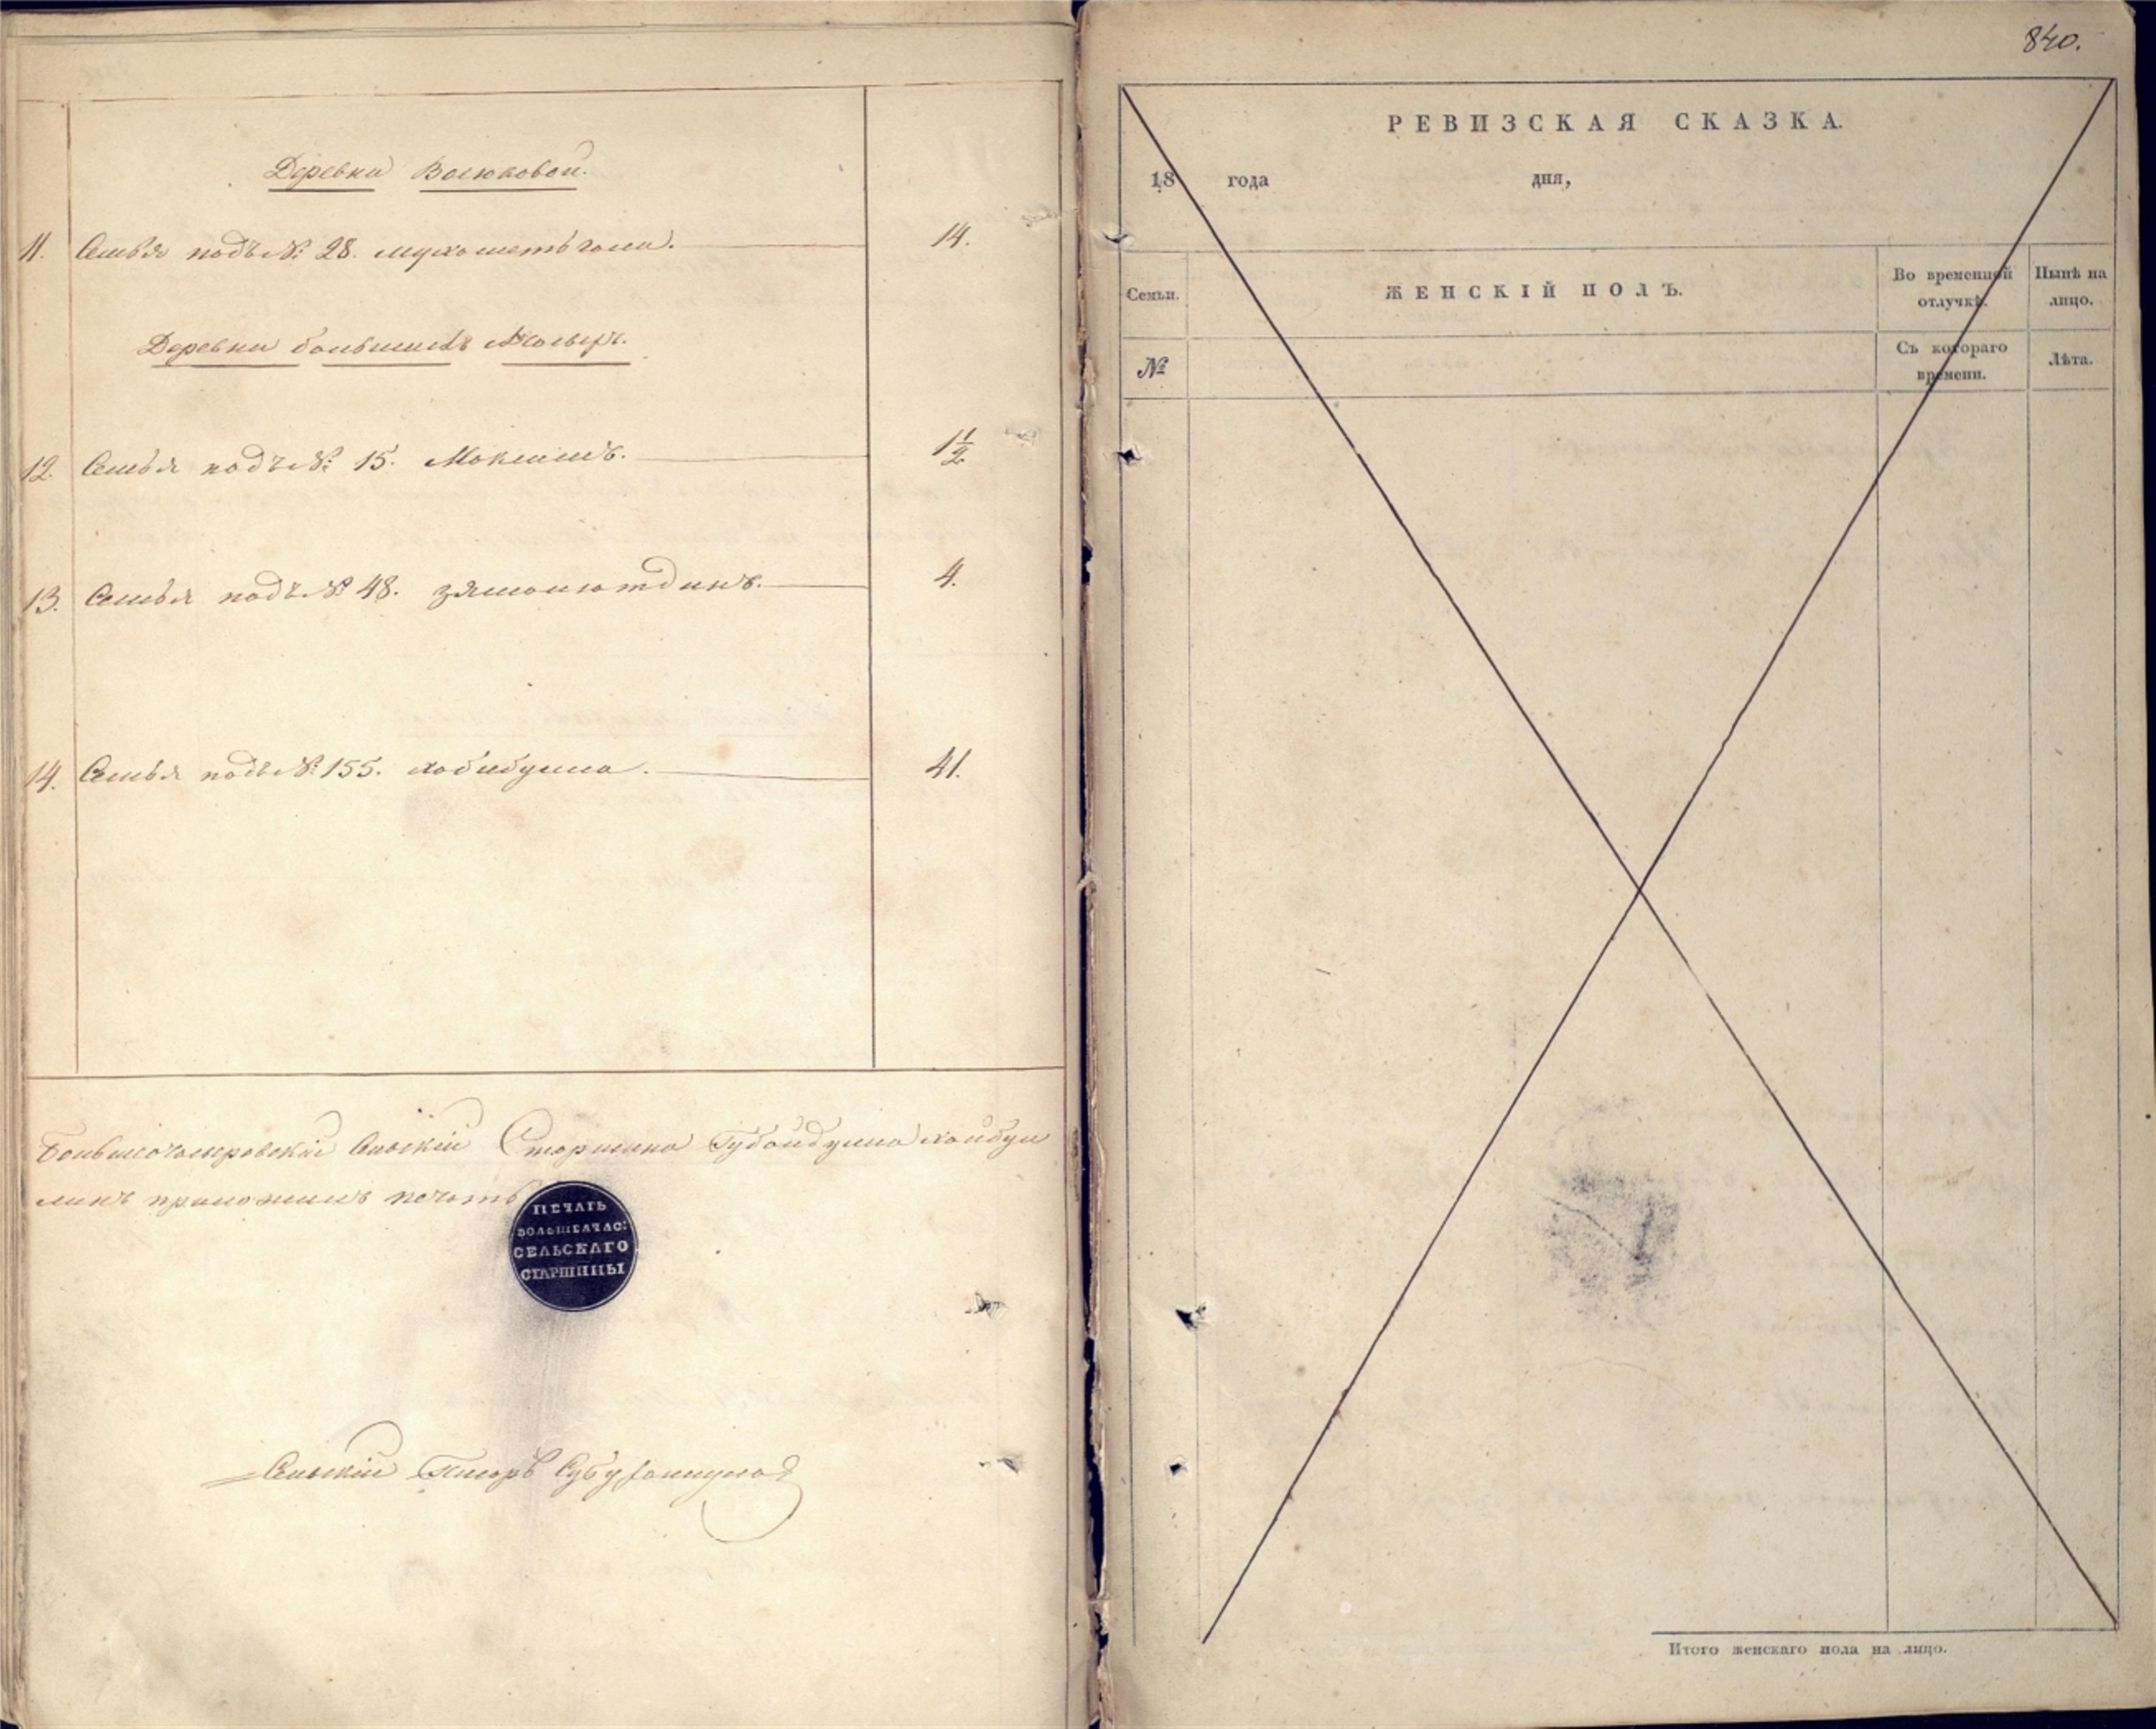 Деревни Васюковой.
11. Семья подъ № 28. мухаметьгали. 14.
Деревни большихъ
12. Семья подъ № 15. Макшинъ. 1½
13. Семья подъ № 48. зямалютдинъ. 4.
14. Семья подъ № 155. хабибулла. 41.
Сельскій Старшина Губайдулла Хайбул
линъ приложилъ печать
ПЕЧАТЬ
БОЛЬШЕЧАС:
СЕЛЬСКАГО
СТАРШИНЫ
Сельскій Писарь
840.
РЕВИЗСКАЯ СКАЗКА.
18 года дня,
Семьи. ЖЕНСКІЙ ПОЛЪ. Во временной отлучкѣ. Нынѣ на лицо.
№ Съ котораго времени. Лѣта.
Итого женскаго пола на лицо.